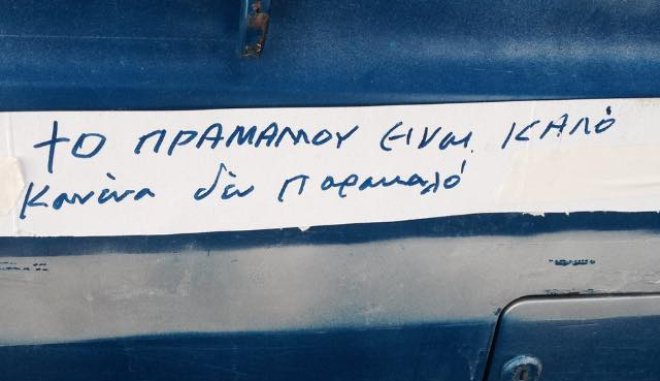 το ΠΡΑΜΑΜΟΥ ΕΙΝΑΙ ΚΑΛό
Κανένα δέν Παρακαλό